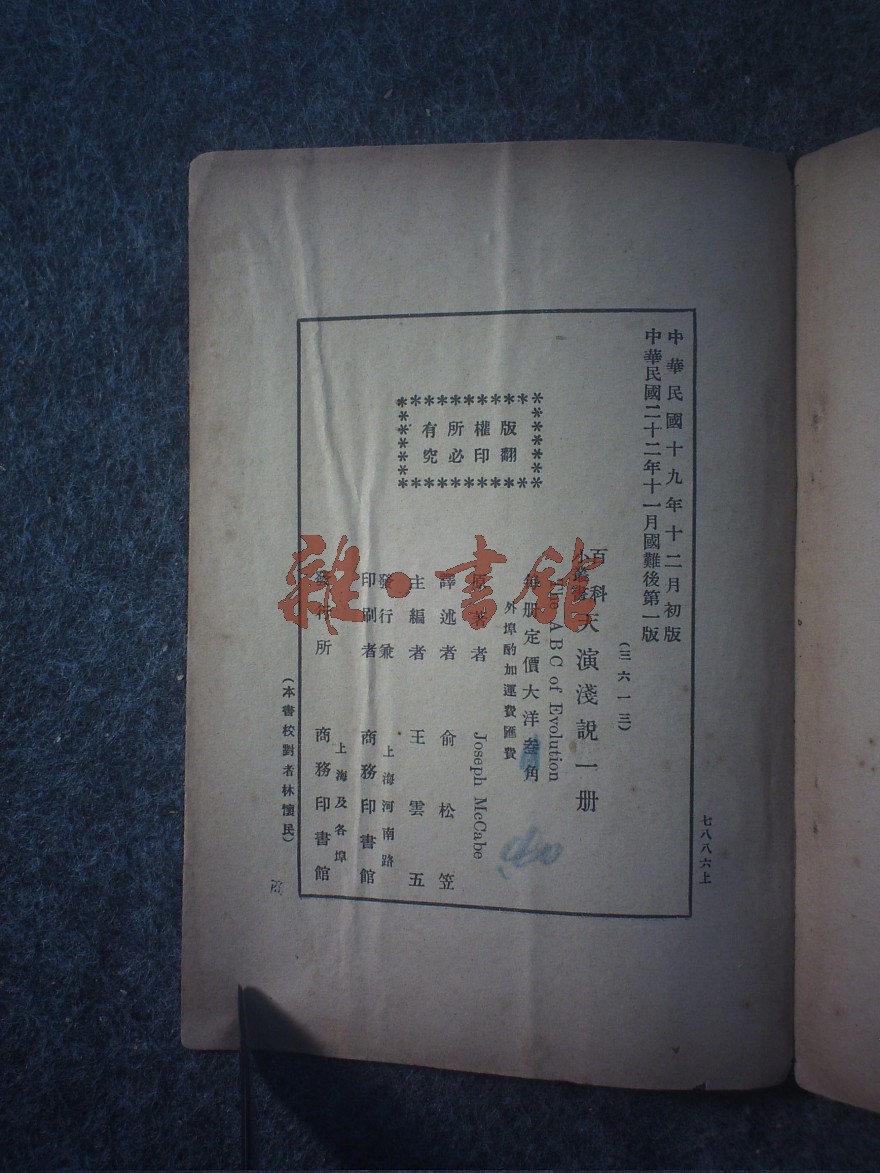 中華民國十九年十二月初版
中華民國二十二年十一月國難後第一版
七八八六上
(三六一三)
百科
小叢書
天演淺說一册
The ABC of Evolution
每册定價大洋叁角
外埠酌加運費匯費
版權所有
翻印必究
原著者 Joseph McCabe
譯述者 俞松笠
主編者 王雲五
發行兼
印刷者
上海河南路
商務印書館
發行所
上海及各埠
商務印書館
(本書校對者林懷民)
雜·書館